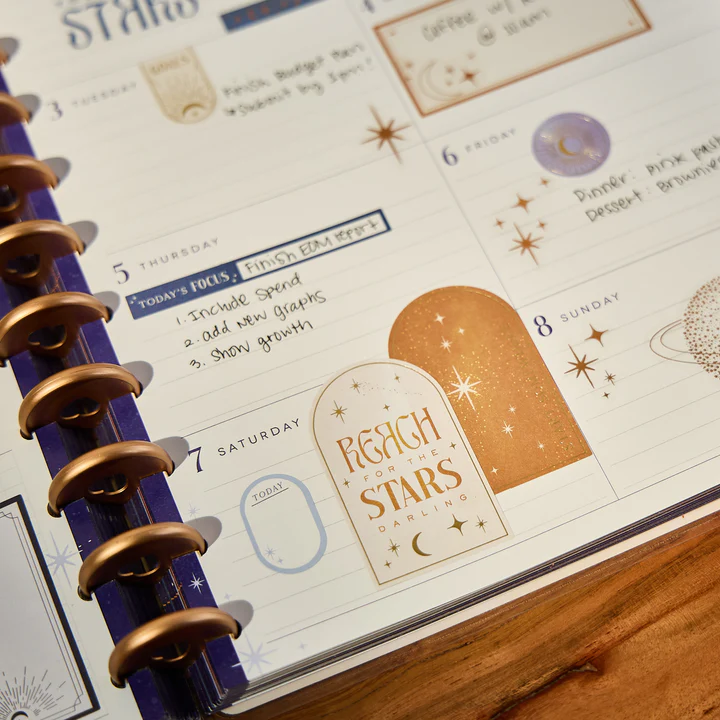 STARS
4
Coffee w/
@ 10am
3 TUESDAY
Finish Budget
*Submit by 3pm!
6 FRIDAY
Dinner: pink
Dessert: Brownie
5 THURSDAY
TODAY'S FOCUS Finish EOM Report
1. Include Spend
2. add new graphs
3. Show growth
8 SUNDAY
7 SATURDAY
TODAY
REACH
FOR THE
STARS
DARLING